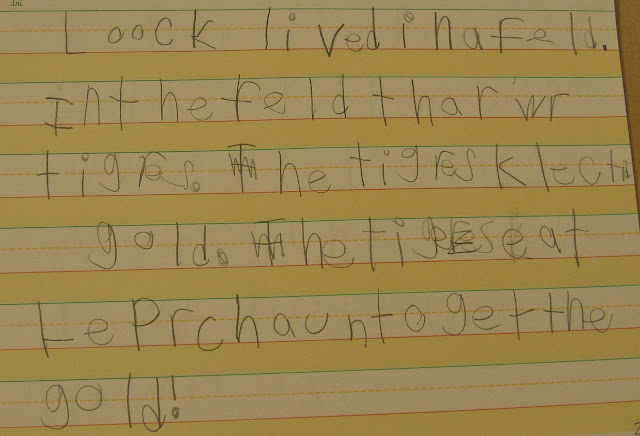 Loock lived in a feld.
In the feld thar wr
tigrs. The tigrs klectid
gold. The tigrs eat
Leprchaun to get the
gold!